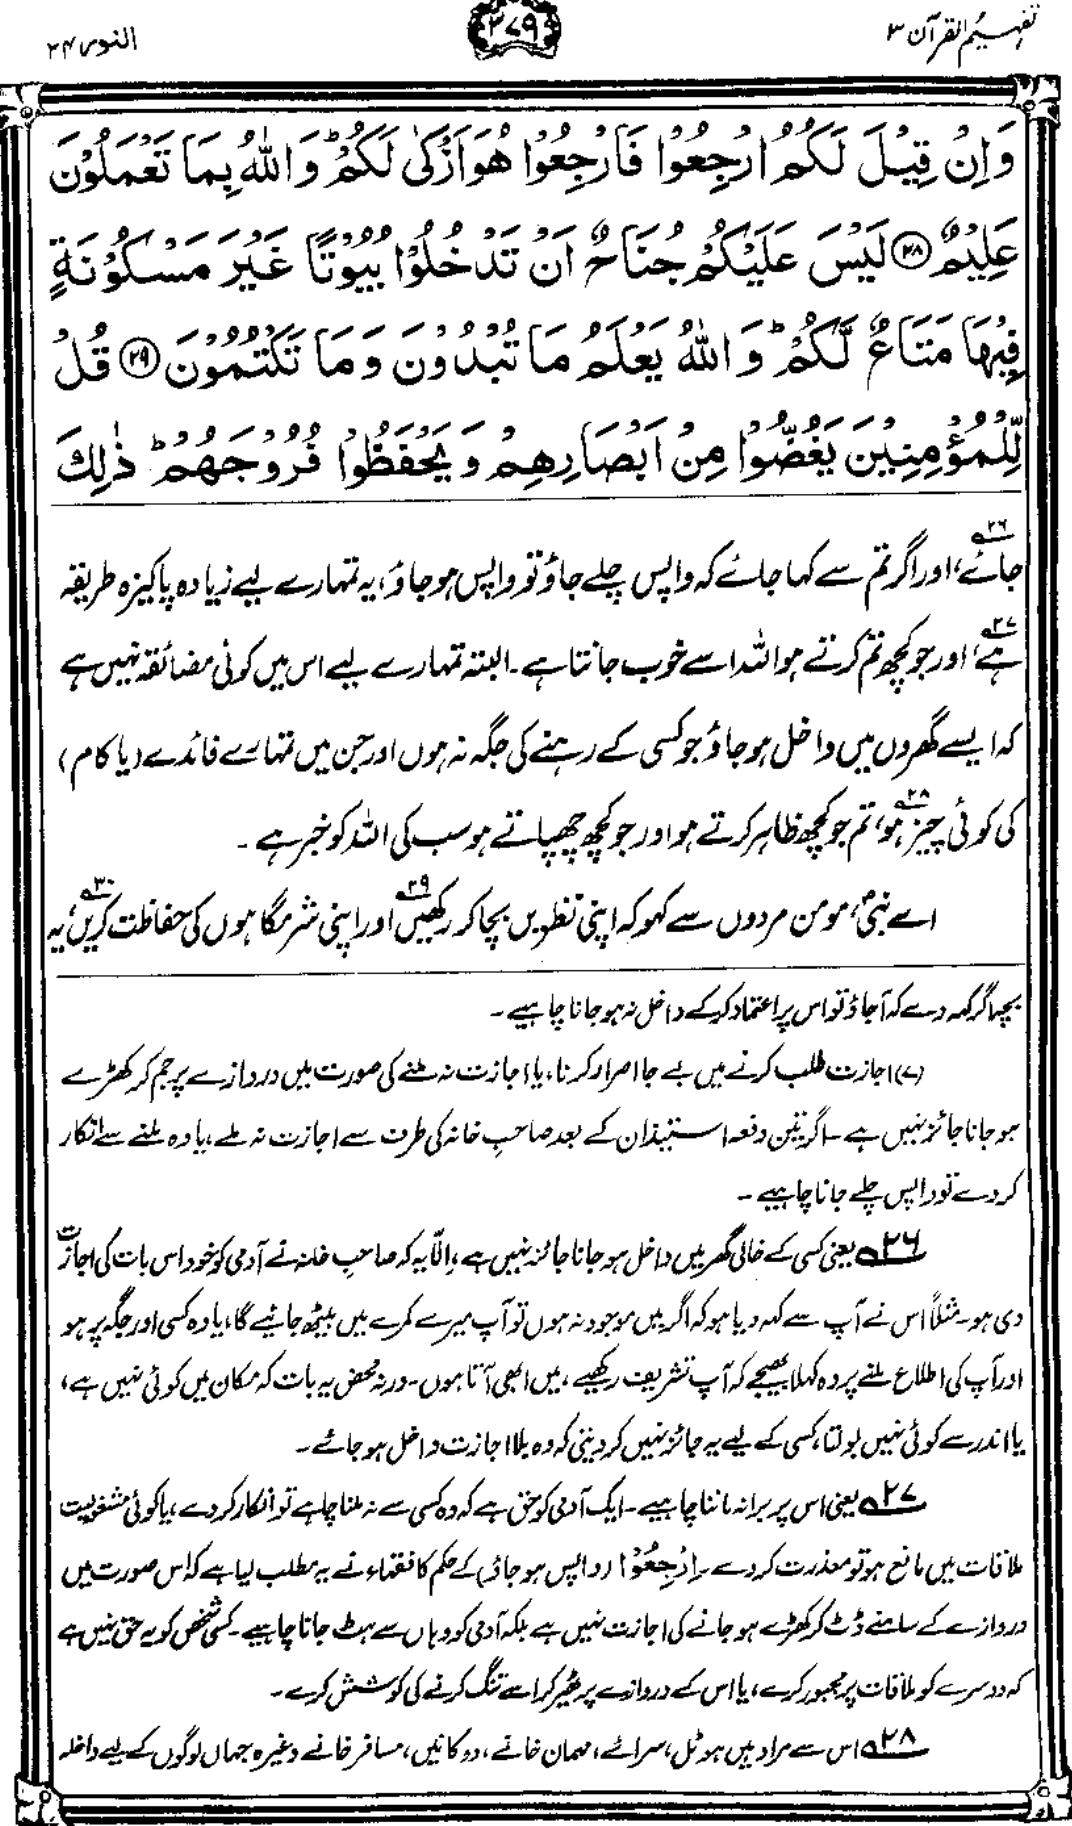 تفہیم القرآن ۳
۳۷۹
النور ۲۴
وَاِنْ قِيْلَ لَكُمُ ارْجِعُوْا فَارْجِعُوْا هُوَ اَزْكٰى لَكُمْ ؕ وَاللّٰهُ بِمَا تَعْمَلُوْنَ
عَلِيْمٌ ۲۸ لَيْسَ عَلَيْكُمْ جُنَاحٌ اَنْ تَدْخُلُوْا بُيُوْتًا غَيْرَ مَسْكُوْنَةٍ
فِيْهَا مَتَاعٌ لَّكُمْ ؕ وَاللّٰهُ يَعْلَمُ مَا تُبْدُوْنَ وَمَا تَكْتُمُوْنَ ۲۹ قُلْ
لِّلْمُؤْمِنِيْنَ يَغُضُّوْا مِنْ اَبْصَارِهِمْ وَيَحْفَظُوْا فُرُوْجَهُمْ ؕ ذٰلِكَ
جائے،۲۶ اور اگر تم سے کہا جائے کہ واپس چلے جاؤ تو واپس ہو جاؤ، یہ تمہارے لیے زیادہ پاکیزہ طریقہ
ہے،۲۷ اور جو کچھ تم کرتے ہو اللہ اسے خوب جانتا ہے۔ البتہ تمہارے لیے اس میں کوئی مضائقہ نہیں ہے
کہ ایسے گھروں میں داخل ہو جاؤ جو کسی کے رہنے کی جگہ نہ ہوں اور جن میں تمہارے فائدے (یا کام)
کی کوئی چیز ہو،۲۸ تم جو کچھ ظاہر کرتے ہو اور جو کچھ چھپاتے ہو سب کی اللہ کو خبر ہے۔
اے نبیؐ، مومن مردوں سے کہو کہ اپنی نظریں بچا کر رکھیں۲۹ اور اپنی شرمگاہوں کی حفاظت کریں،۳۰ یہ
بچہ اگر کہہ دے کہ آجاؤ تو اس پر اعتماد کر کے داخل نہ ہو جانا چاہیے۔
(۷) اجازت طلب کرنے میں بے جا اصرار کرنا، یا اجازت نہ ملنے کی صورت میں دروازے پر جم کر کھڑے
ہو جانا جائز نہیں ہے۔ اگر تین دفعہ استیذان کے بعد صاحبِ خانہ کی طرف سے اجازت نہ ملے، یا وہ ملنے سے انکار
کر دے تو واپس چلے جانا چاہیے۔
۲۶ یعنی کسی کے خالی گھر میں داخل ہو جانا جائز نہیں ہے، اِلّا یہ کہ صاحبِ خانہ نے آدمی کو خود اس بات کی اجازت
دی ہو۔ مثلاً اس نے آپ سے کہہ دیا ہو کہ اگر میں موجود نہ ہوں تو آپ میرے کمرے میں بیٹھ جائیے گا، یا وہ کسی اور جگہ پر ہو
اور آپ کی اطلاع ملنے پر وہ کہلا بھیجے کہ آپ تشریف رکھیے، میں ابھی آتا ہوں۔ ورنہ محض یہ بات کہ مکان میں کوئی نہیں ہے،
یا اندر سے کوئی نہیں بولتا، کسی کے لیے یہ جائز نہیں کر دیتی کہ وہ بلا اجازت داخل ہو جائے۔
۲۷ یعنی اس پر برا نہ ماننا چاہیے۔ ایک آدمی کو حق ہے کہ وہ کسی سے نہ ملنا چاہے تو انکار کر دے، یا کوئی مشغولیت
ملاقات میں مانع ہو تو معذرت کر دے۔ اِرْجِعُوْا (واپس ہو جاؤ) کے حکم کا فقہاء نے یہ مطلب لیا ہے کہ اس صورت میں
دروازے کے سامنے ڈٹ کر کھڑے ہو جانے کی اجازت نہیں ہے بلکہ آدمی کو وہاں سے ہٹ جانا چاہیے۔ کسی شخص کو یہ حق نہیں ہے
کہ دوسرے کو ملاقات پر مجبور کرے، یا اس کے دروازے پر ٹھیر کر اسے تنگ کرنے کی کوشش کرے۔
۲۸ اس سے مراد ہیں ہوٹل، سرائے، مہمان خانے، دوکانیں، مسافر خانے وغیرہ جہاں لوگوں کے لیے داخلہ